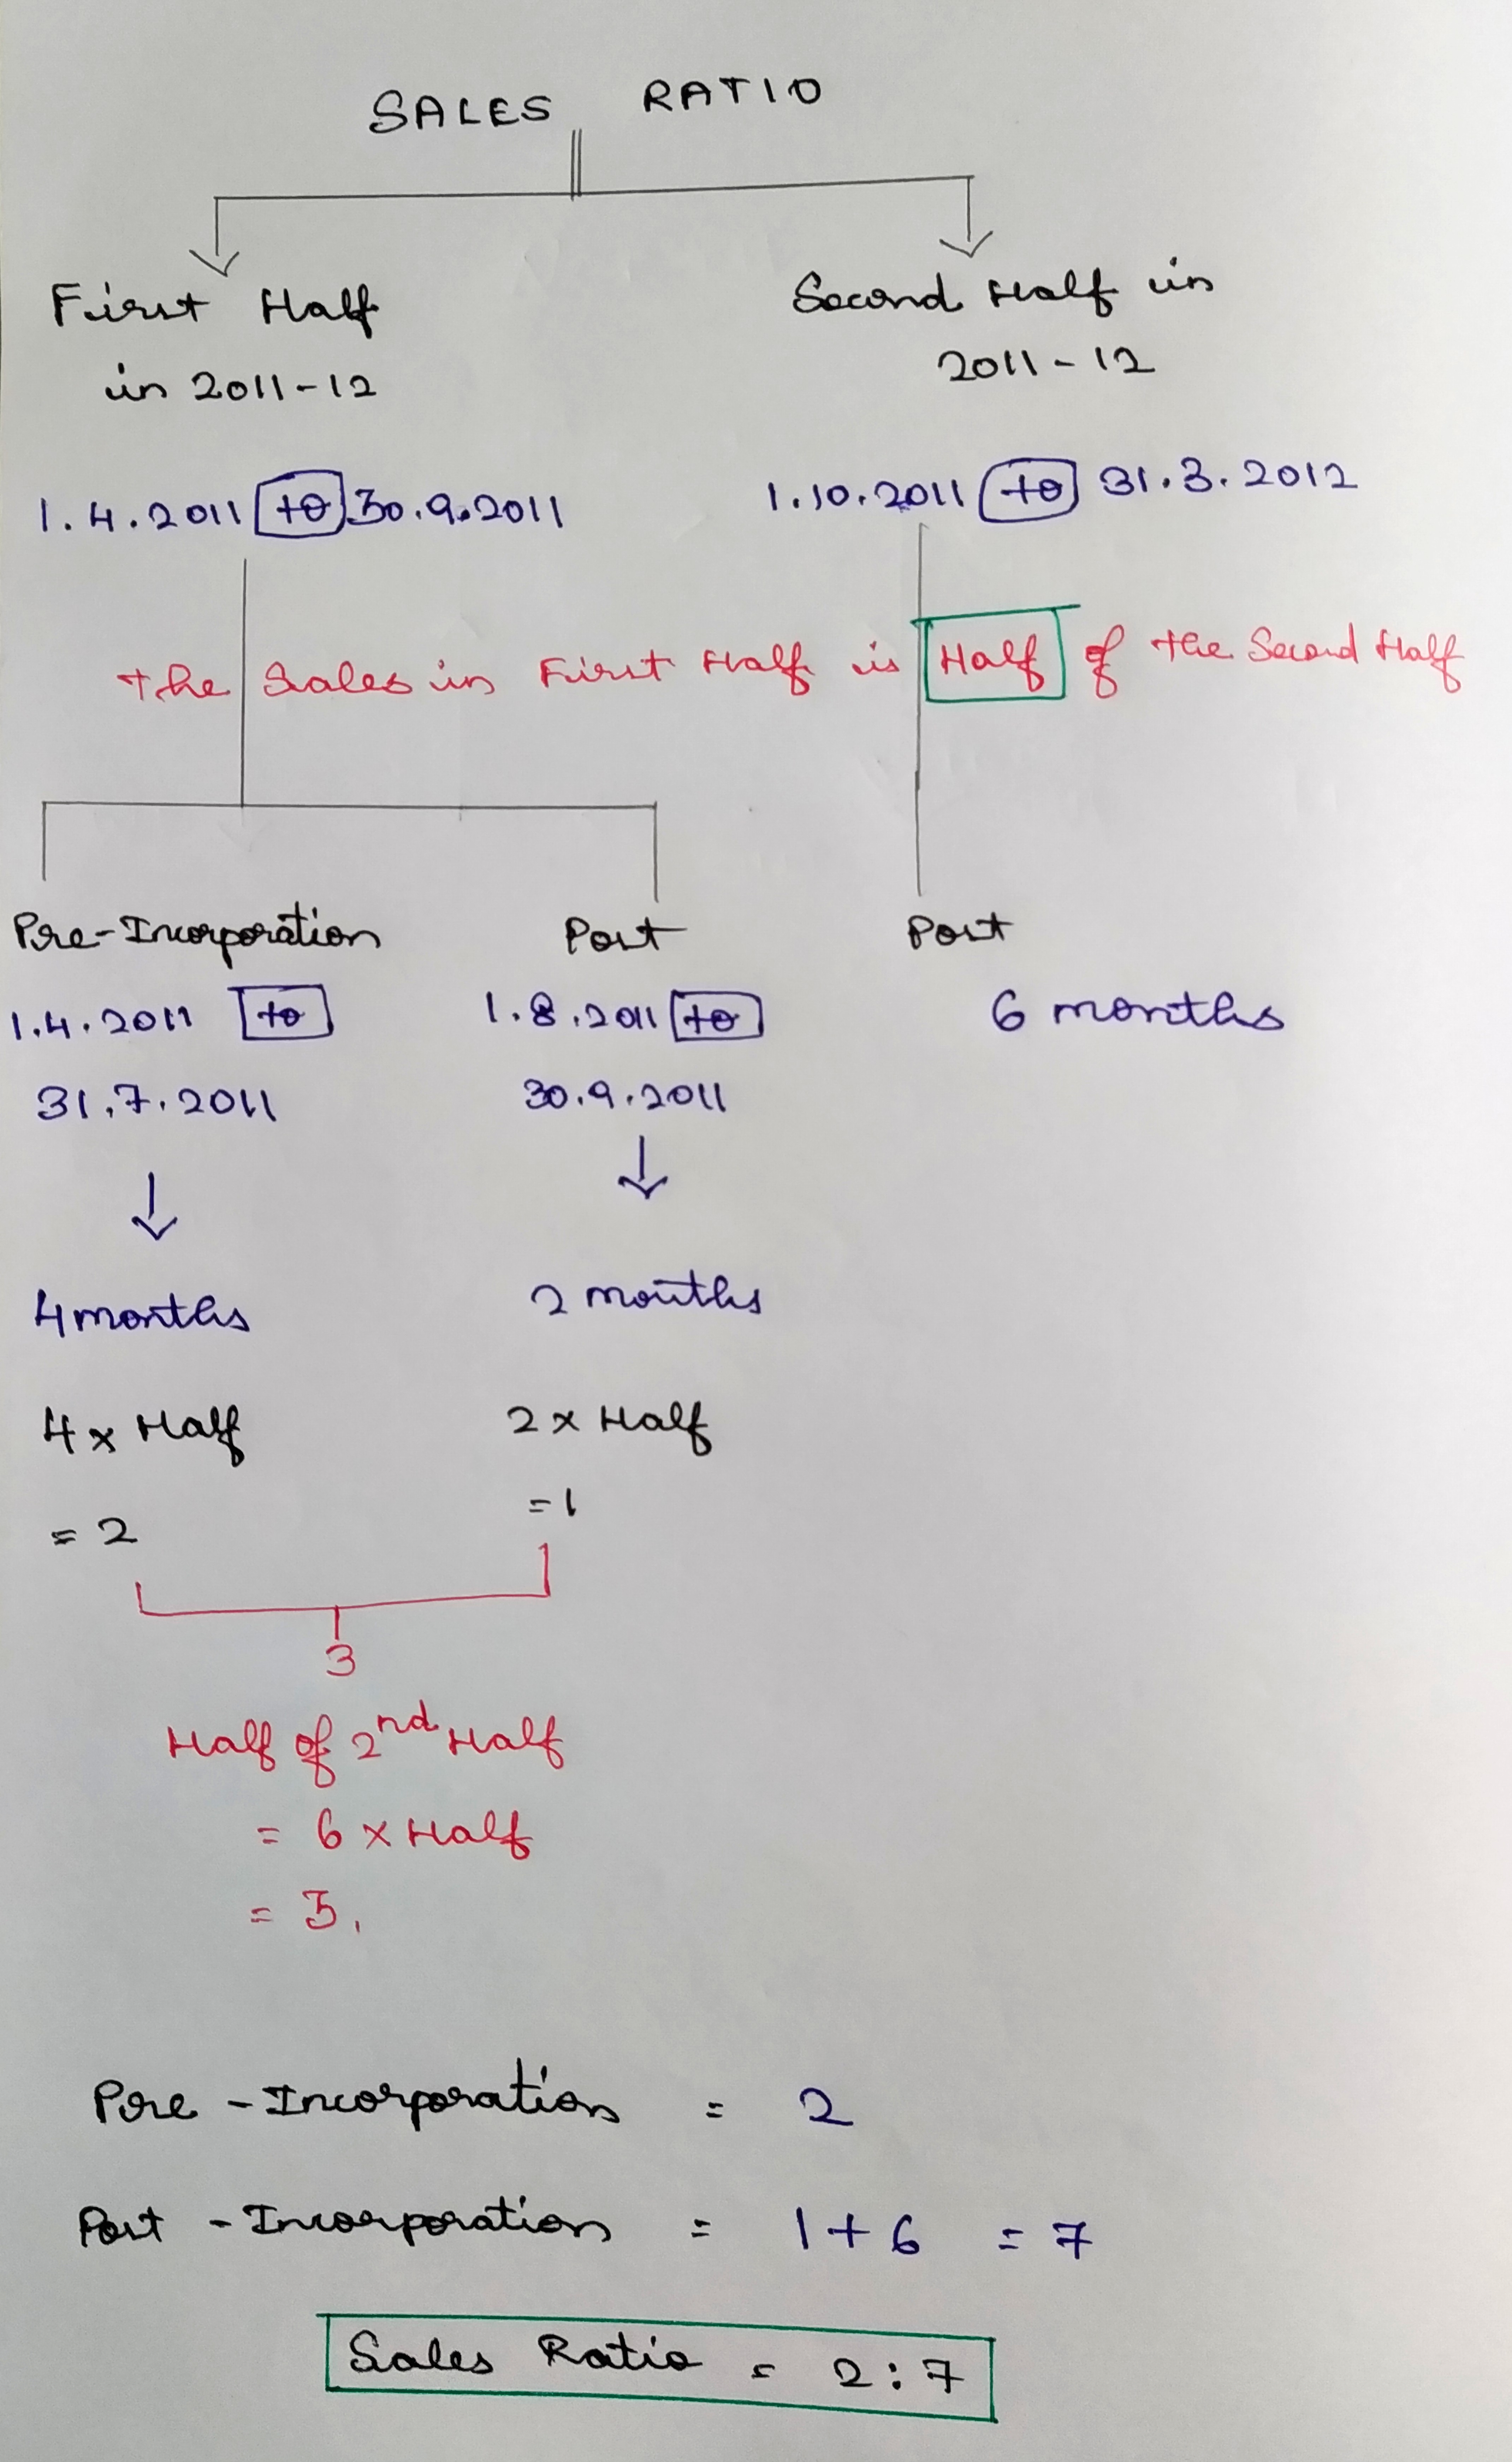 SALES RATIO
First Half
in 2011-12
Second Half in
2011-12
1.4.2011 to 30.9.2011
1.10.2011 to 31.3.2012
the Sales in First Half is Half of the Second Half
Pre-Incorporation
Post
Post
1.4.2011 to
31.7.2011
1.8.2011 to
30.9.2011
6 months
4 months
2 months
4 x Half
= 2
2 x Half
= 1
3
Half of 2nd Half
= 6 x Half
= 3.
Pre - Incorporation = 2
Post - Incorporation = 1 + 6 = 7
Sales Ratio = 2:7